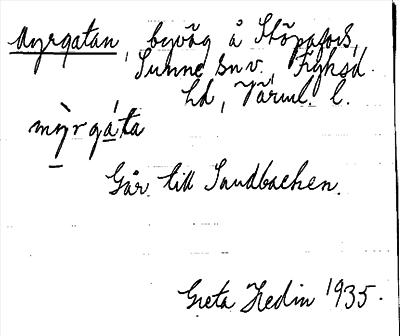 Myrgatan, byväg å Stöpafors,
Sunne sn v., Fryksd.
hd, Värml. l.
mỳrgáta
Går till Sandbacken.
Greta Hedin 1935.